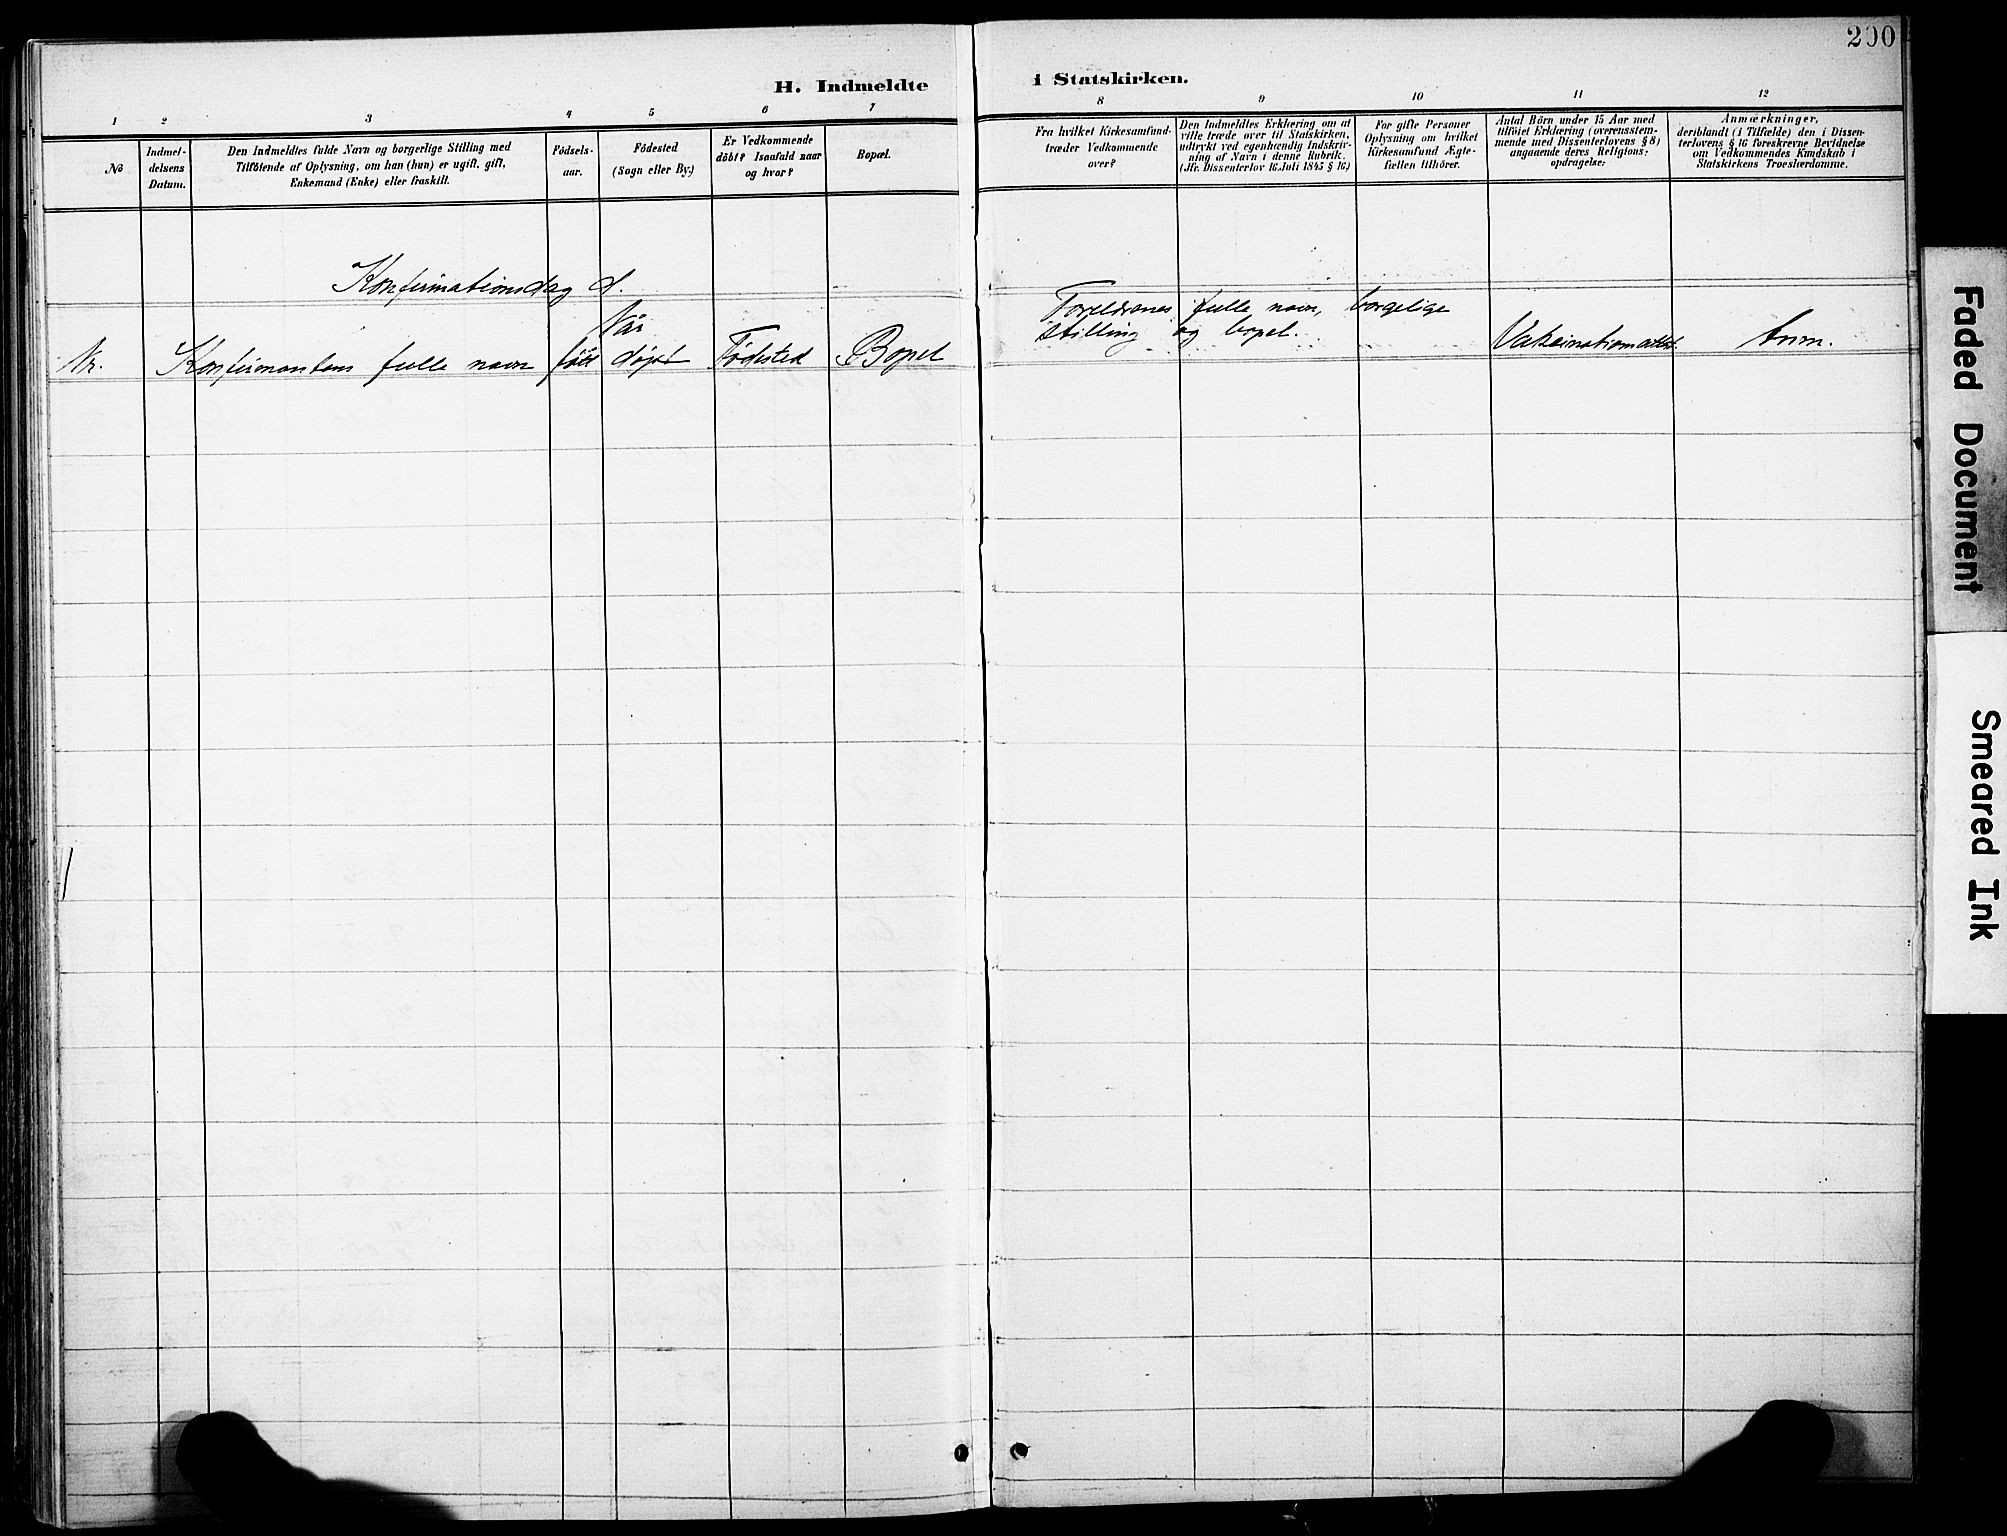 200
H. Indmeldte i Statskirken.
1 2 3 4 5 6 7 8 9 10 11 12
No
Indmel-
delsens
Datum.
Den Indmeldtes fulde Navn og borgerlige Stilling med
Tilföiende af Oplysning, om han (hun) er ugift, gift,
Enkemand (Enke) eller fraskilt.
Födsels-
aar.
Födested
(Sogn eller By.)
Er Vedkommende
döbt? Isaafald naar
og hvor?
Bopæl.
Fra hvilket Kirkesamfund
træder Vedkommende
over?
Den Indmeldtes Erklæring om at
ville træde over til Statskirken,
udtrykt ved egenhændig Indskriv-
ning af Navn i denne Rubrik.
(Jfr. Dissenterlov 16 Juli 1845 § 16.)
For gifte Personer
Oplysning om hvilket
Kirkesamfund Ægte-
fællen tilhörer.
Antal Börn under 15 Aar med
tilföiet Erklæring (overensstem-
mende med Dissenterlovens § 8)
angaaende deres Religions-
opdragelse.
Anmærkninger,
deriblandt (i Tilfælde) den i Dissen-
terlovens § 16 foreskrevne Bevidnelse
om Vedkommendes Kundskab i
Statskirkens Troeslærdomme.
Konfirmationsdag d.
Nr.
Konfirmantens fulle navn
født
Når
døpt
Fødested
Bopel
Foreldrenes fulle navn, borgelige
stilling og bopel.
Vaksinationsattest
Anm.
Faded Document
Smeared Ink